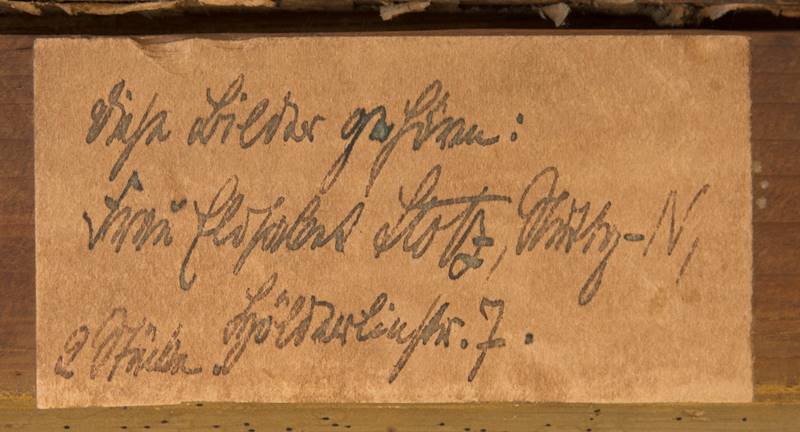 Diese Bilder gehören:
Frau Elisabet Stotz, Stuttg-N,
2 Stücke. Hölderlinstr. 7.